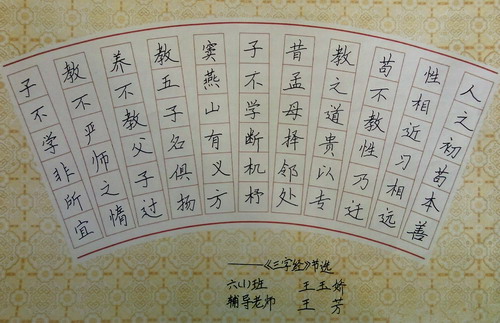 人之初苟本善
性相近习相远
苟不教性乃迁
教之道贵以专
昔孟母择邻处
子不学断机杼
窦燕山有义方
教五子名俱扬
养不教父子过
教不严师之惰
子不学非所宜
——《三字经》节选
六(1)班 王玉娇
辅导老师 王芳